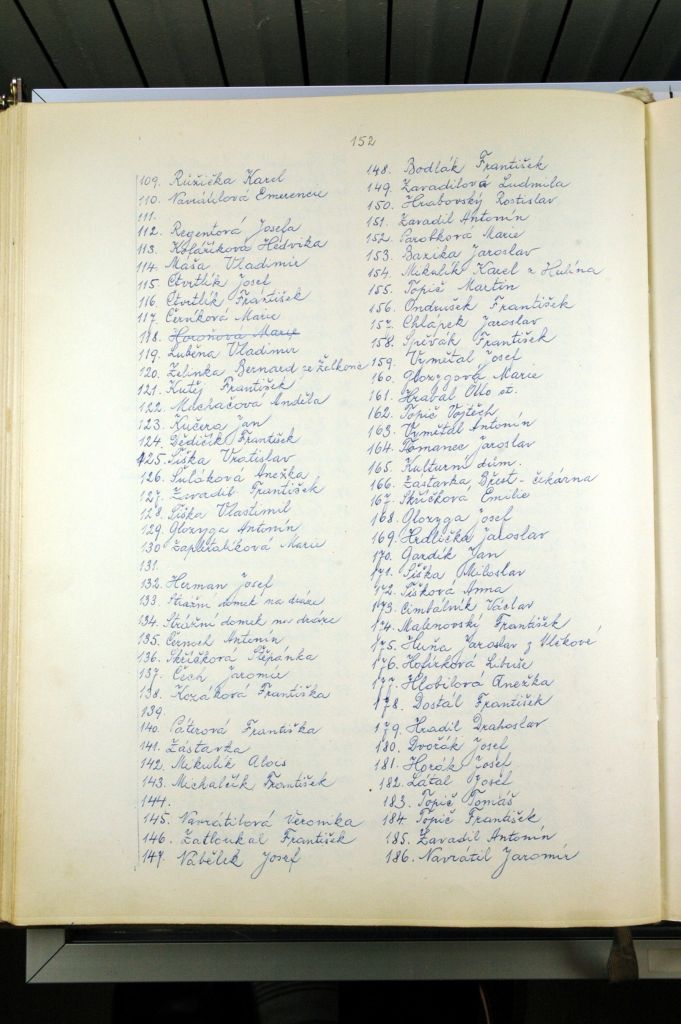 152
109. Růžička Karel
110. Navrátilová Emerencie
111.
112. Regentová Josefa
113. Kolaříková Hedvika
114. Máša Vladimír
115. Čtvrtlík Josef
116. Čtvrtlík František
117. Černíková Marie
118. Horoňová Marie
119. Luběna Vladimír
120. Zelinka Bernard ze Želkovic
121. Kutěj František
122. Macháčová Anděla
123. Kučera Jan
124. Dědičík František
125. Šiška Vratislav
126. Šuláková Anežka
127. Zavadil František
128. Šiška Vlastimil
129. Glozyga Antonín
130. Zapletalíková Marie
131.
132. Herman Josef
133. Strážní domek na dráze
134. Strážní domek na dráze
135. Černoch Antonín
136. Skřičková Štěpánka
137. Čech Jaromír
138. Kozáková Františka
139.
140. Páterová Františka
141. Zástavka
142. Mikulík Alois
143. Michalčík František
144.
145. Navrátilová Veronika
146. Zatloukal František
147. Nábělek Josef
148. Bodlák František
149. Zavadilová Ludmila
150. Hrabovský Rostislav
151. Zavadil Antonín
152. Parobková Marie
153. Bazika Jaroslav
154. Mikulík Karel z Hulína
155. Topič Martin
156. Ondrušek František
157. Chlápek Jaroslav
158. Spěvák František
159. Vymětal Josef
160. Glozygová Marie
161. Hrabal Otto st.
162. Topič Vojtěch
163. Vymětal Antonín
164. Tomanec Jaroslav
165. Kulturní dům.
166. Zástavka, Břest - čekárna
167. Skřičková Emilie
168. Glozyga Josef
169. Hrdlička Jaroslav
170. Gardík Jan
171. Šiška Miloslav
172. Šišková Anna
173. Cimbálník Václav
174. Malenovský František
175. Huňa Jaroslav z Vlčkové
176. Hofírková Libuše
177. Hlobilová Anežka
178. Dostál František
179. Hradil Drahoslav
180. Dvořák Josef
181. Horák Josef
182. Látal Josef
183. Topič Tomáš
184. Topič František
185. Zavadil Antonín
186. Navrátil Jaromír